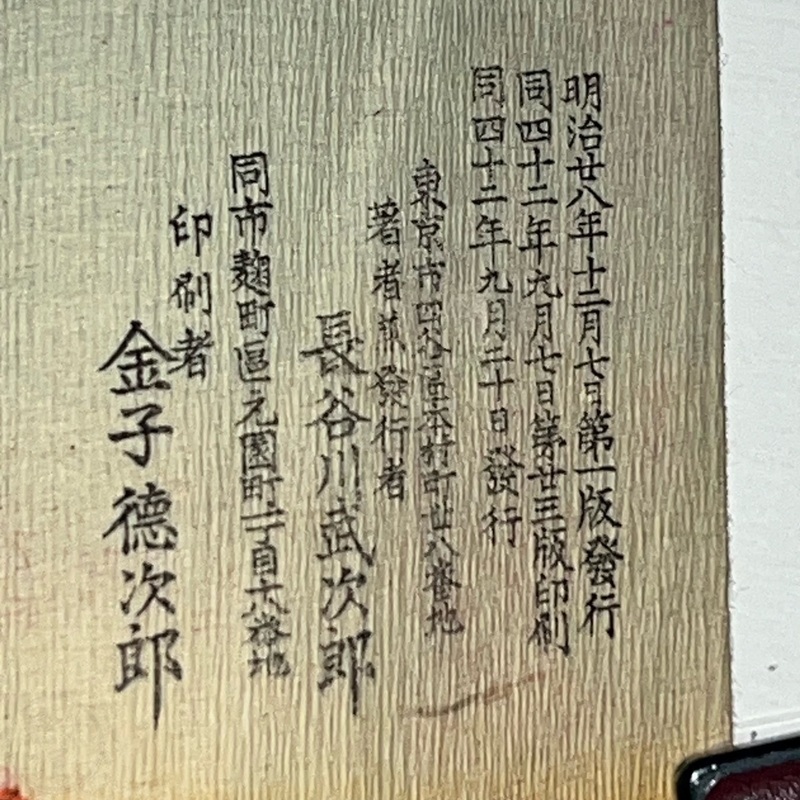 明治廿八年十二月七日第一版發行
同四十二年九月七日第廿三版印刷
同四十二年九月二十日發行
東京市四谷區本村町卅八番地
著者兼發行者
長谷川武次郎
同市麹町區元園町二丁目十八番地
印刷者
金子德次郎